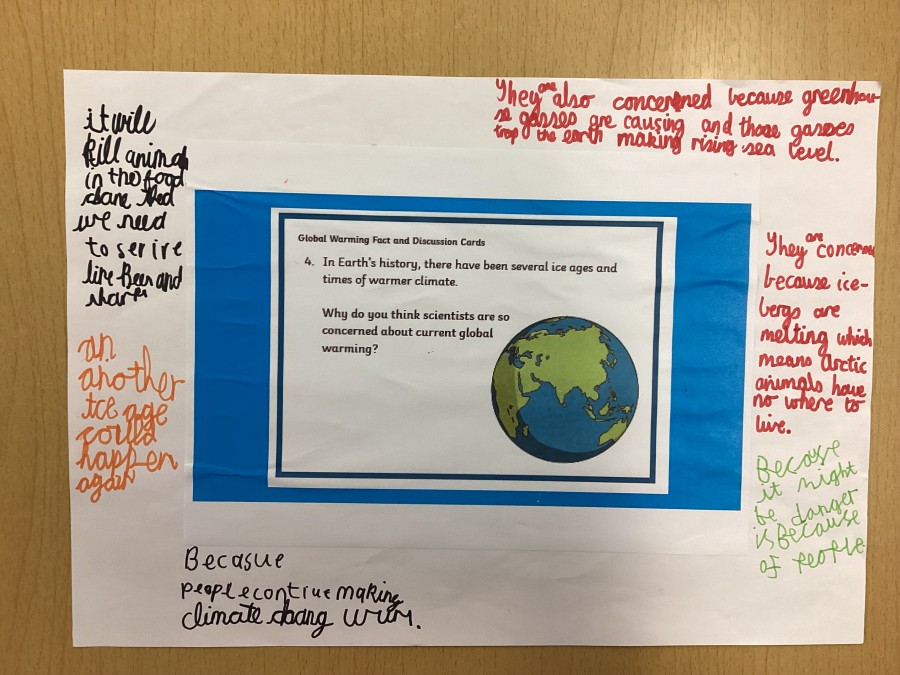 They are also concerned because greenhou-
se gasses are causing and those gasses
trap the earth making rising sea level.
it will
kill animal
in the food
that
we need
to
like Bees and
Global Warming Fact and Discussion Cards
4. In Earth's history, there have been several ice ages and
times of warmer climate.
Why do you think scientists are so
concerned about current global
warming?
They are concerned
because ice-
bergs are
melting which
means arctic
animals have
no where to
live.
an
another
ice age
could
happen
again
Becaose
it might
be danger
is Because
of People
Becasue
people making
climate